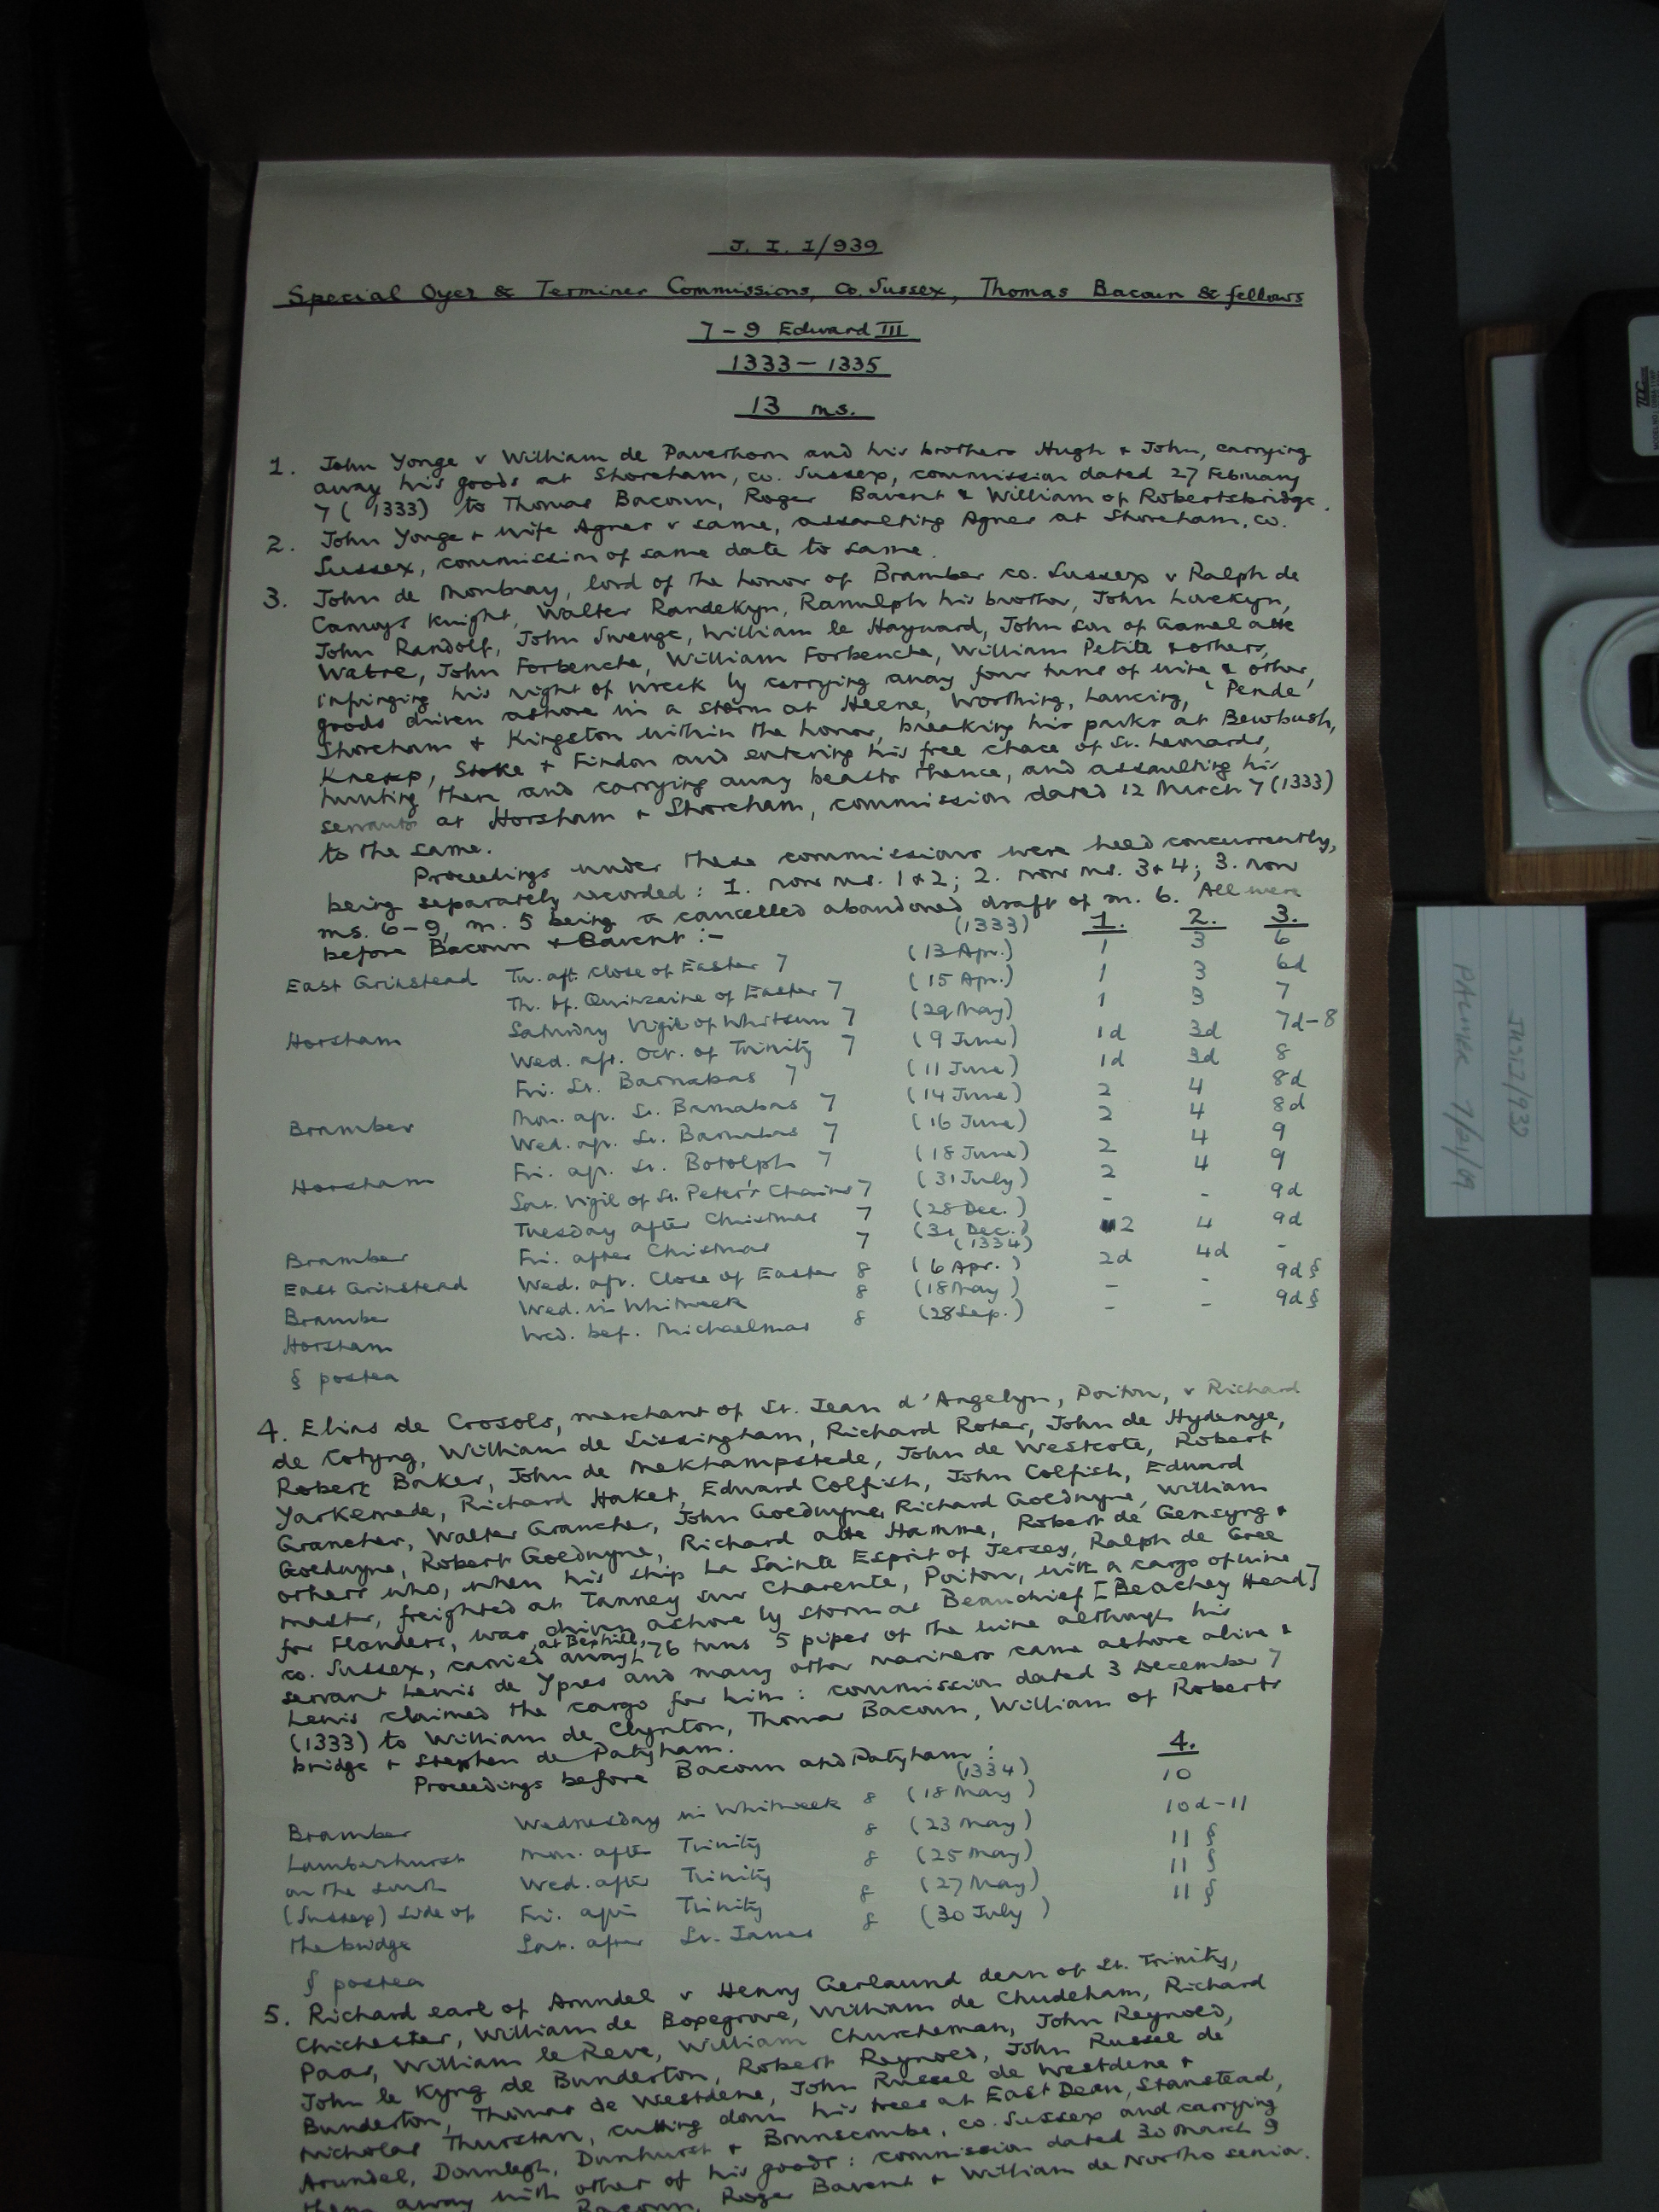 J. I. 1/939
Special Oyer & Terminer Commissions, Co. Sussex, Thomas Bacoun & fellows
7 - 9 Edward III
1333 - 1335
13 ms.
1. John Yonge v William de Paverhorn and his brothers Hugh & John, carrying
away his goods at Shoreham, co. Sussex, commission dated 27 February
7 (1333) to Thomas Bacoun, Roger Bavent & William of Robertsbridge.
2. John Yonge & wife Agnes v same, assaulting Agnes at Shoreham, co.
Sussex, commission of same date to same.
3. John de Moubray, lord of the honor of Bramber co. Sussex v Ralph de
Camoys knight, Walter Randekyn, Ranulph his brother, John Lovekyn,
John Randolf, John Swenge, William le Hayward, John son of Gamel atte
Watre, John Forbenche, William Forbenche, William Petite & others,
infringing his right of wreck by carrying away four tuns of wine & other
goods driven ashore in a storm at Heene, Worthing, Lancing, 'Pende'
Shoreham & Kingston within the honor, breaking his parks at Bewbush,
Knepp, Stoke & Findon and entering his free chace of St. Leonards,
hunting there and carrying away beasts thence, and assaulting his
servants at Horsham & Shoreham, commission dated 12 March 7 (1333)
to the same.
Proceedings under these commissions were held concurrently,
being separately recorded: 1. now ms. 1 & 2; 2. now ms. 3 & 4; 3. now
ms. 6-9, m. 5 being a cancelled abandoned draft of m. 6. All were
before Bacoun & Bavent :-
(1333) 1. 2. 3.
East Grinstead Tu. aft. Close of Easter 7 (13 Apr.) 1 3 6
Th. bf. Quinzaine of Easter 7 (15 Apr.) 1 3 6d
Horsham Saturday Vigil of Whitsun 7 (29 May) 1 3 7
Wed. aft. Oct. of Trinity 7 (9 June) 1d 3d 7d-8
Fri. St. Barnabas 7 (11 June) 1d 3d 8
Bramber Mon. af. St. Barnabas 7 (14 June) 2 4 8d
Wed. af. St. Barnabas 7 (16 June) 2 4 8d
Fri. af. St. Botolph 7 (18 June) 2 4 9
Horsham Sat. Vigil of St. Peter's Chains 7 (31 July) 2 4 9
Tuesday after Christmas 7 (28 Dec.) - - 9d
Bramber Fri. after Christmas 7 (31 Dec.) 2 4 9d
(1334)
East Grinstead Wed. aft. Close of Easter 8 (6 Apr.) 2d 4d -
Bramber Wed. in Whitweek 8 (18 May) - - 9d §
Horsham Wed. bef. Michaelmas 8 (28 Sep.) - - 9d §
§ postea
4. Elias de Crosols, merchant of St. Jean d'Angelyn, Poitou, v Richard
de Cotyng, William de Sissingham, Richard Roter, John de Hydenye,
Robert Baker, John de Mekhampstede, John de Westcote, Robert
Yarkemede, Richard Haket, Edward Colfish, John Colfish, Edward
Grancher, Walter Grancher, John Goedwyne, Richard Goedwyne, William
Goedwyne, Robert Goedwyne, Richard atte Hamme, Robert de Gensyng &
others who, when his ship La Sainte Esprit of Jersey, Ralph de Gree
master, freighted at Tanney sur Charente, Poitou, with a cargo of wine
for Flanders, was driven ashore by storm at Beauchief [Beachey Head]
co. Sussex, carried away at Bexhill, 76 tuns 5 pipes of the wine although his
servant Lewis de Ypres and many other mariners came ashore alive &
Lewis claimed the cargo for him: commission dated 3 December 7
(1333) to William de Clynton, Thomas Bacoun, William of Roberts
bridge & Stephen de Patyham.
Proceedings before Bacoun and Patyham :
(1334) 4.
Bramber Wednesday in Whitweek 8 (18 May) 10
Lamberhurst Mon. after Trinity 8 (23 May) 10d-11
on the south Wed. after Trinity 8 (25 May) 11 §
(Sussex) side of Fri. after Trinity 8 (27 May) 11 §
the bridge Sat. after St. James 8 (30 July) 11 §
§ postea
5. Richard earl of Arundel v Henry Gerlaund dean of St. Trinity,
Chichester, William de Boxegrove, William de Chudeham, Richard
Paas, William le Reve, William Churcheman, John Reynold,
John le Kyng de Bunderton, Robert Reynold, John Russel de
Bunderton, Thomas de Westdene, John Russel de Westdene &
Nicholas Thurstan, cutting down his trees at East Dean, Stanstead,
Arundel, Dounlegh, Dunhurst & Brunscombe, co. Sussex and carrying
them away with other of his goods: commission dated 30 March 9
Bacoun, Roger Bavent & William de Northo senior.